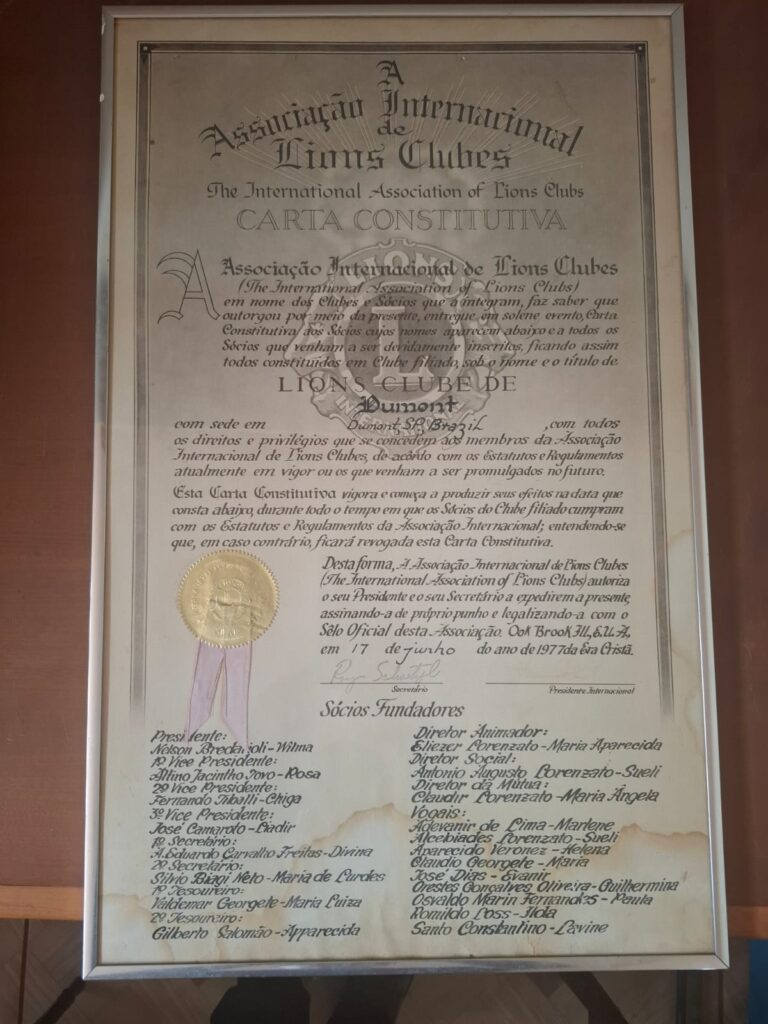 A
Associação Internacional
de
Lions Clubes
The International Association of Lions Clubs
CARTA CONSTITUTIVA
A Associação Internacional de Lions Clubes
(The International Association of Lions Clubs)
em nome dos Clubes e Sócios que a integram, faz saber que
outorgou por meio da presente, entregue em solene evento, Carta
Constitutiva aos Sócios cujos nomes aparecem abaixo e a todos os
Sócios que venham a ser devidamente inscritos, ficando assim
todos constituidos em Clube filiado, sob o nome e o título de
LIONS CLUBE DE
Dumont
com sede em Dumont, SP, Brazil ,com todos
os direitos e privilégios que se concedem aos membros da Associação
Internacional de Lions Clubes, de acôrdo com os Estatutos e Regulamentos
atualmente em vigor ou os que venham a ser promulgados no futuro.
Esta Carta Constitutiva vigora e começa a produzir seus efeitos na data que
consta abaixo, durante todo o tempo em que os Sócios do Clube filiado cumpram
com os Estatutos e Regulamentos da Associação Internacional; entendendo-se
que, em caso contrário, ficará revogada esta Carta Constitutiva.
Desta forma, A Associação Internacional de Lions Clubes
(The International Association of Lions Clubs) autoriza
o seu Presidente e o seu Secretário a expedirem a presente,
assinando-a de próprio punho e legalizando-a com o
Sêlo Oficial desta Associação. Oak Brook Ill., E.U.A.,
em 17 de junho do ano de 1977 da Era Cristã.
Secretário
Presidente Internacional
Sócios Fundadores
Presidente:
Nelson - Wilma
1º Vice Presidente:
Altino Jacintho Tovo - Rosa
2º Vice Presidente:
Fernando - Chiga
3º Vice Presidente:
José Camaroto - Liadir
1º Secretário:
A. Eduardo Carvalho Freitas - Divina
2º Secretário:
Silvio Biagi Neto - Maria de Lurdes
1º Tesoureiro:
Valdemar Georgete - Maria Luiza
2º Tesoureiro:
Gilberto Salomão - Apparecida
Diretor Animador:
Eliezer Lorenzato - Maria Aparecida
Diretor Social:
Antonio Augusto Lorenzato - Sueli
Diretor da Mútua:
Claudir Lorenzato - Maria Ângela
Vogais:
Adevanir de Lima - Marlene
Alcebiades Lorenzato - Sueli
Aparecido Veronez - Helena
Claudio Georgete - Maria
José Dias - Evanir
Orestes Gonçalves Oliveira - Guilhermina
Osvaldo Marin Fernandes - Paula
Romildo Loss - Ilda
Santo Constantino - Lavine